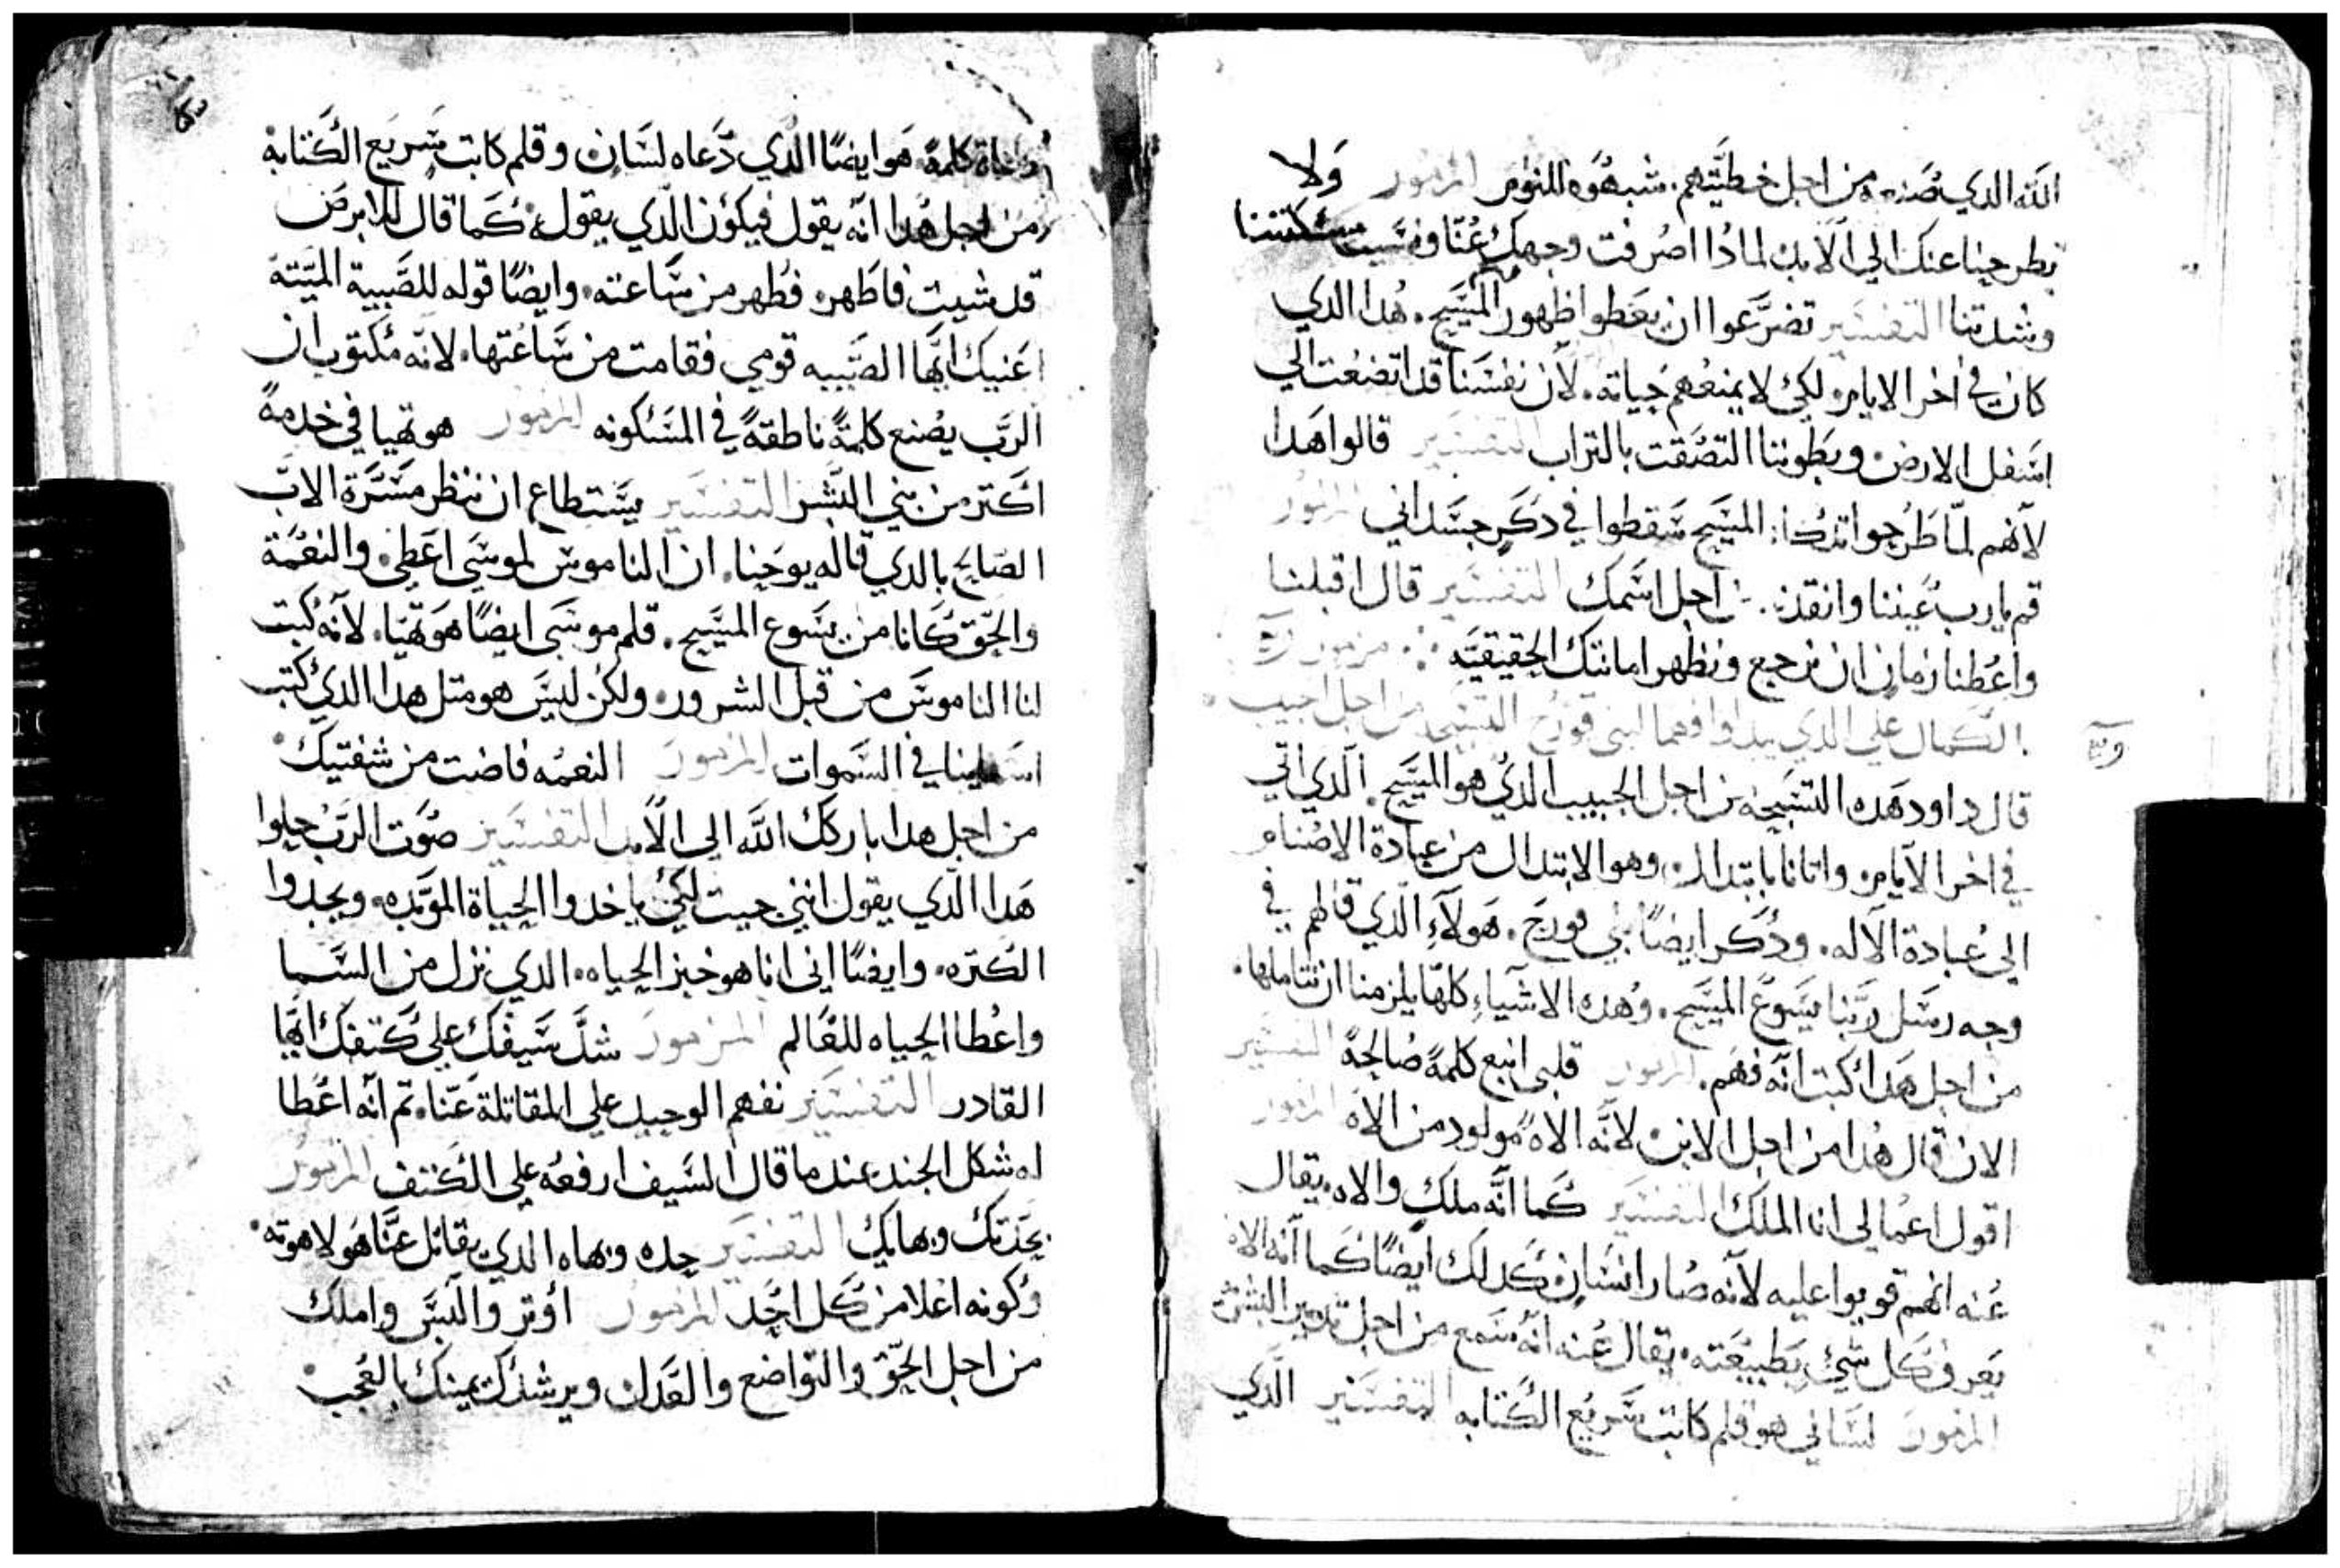 الله الدي صنعه من اجل خطيتهم. شبهوه للنوم المزمور ولا
تطرحينا عنك الي الابد لمادا اصرفت وجهك عنا ونسيت مسكنتنا
وشدتنا التفسير تضرعوا ان يعطوا ظهور المسيح. هدا الدي
كان في اخر الايام. لكي لا يمنعهم حياته. لان نفسنا قد اتضعت الي
اسفل الارض. وبطوننا التصقت بالتراب التفسير قالوا هدا
لانهم لما طرحوا المسيح سقطوا في دكر جسداني المزمور
قم يارب عيننا وانقدنا من اجل اسمك التفسير قال اقبلنا
واعطنا زمان ان نرجع ونظهر امانتك الحقيقيه ∴ مزمور
الكمال علي الدي يبدلوا وفهما لبني قورح التسبيحه من اجل الحبيب
قال داود هده التسبيحه من اجل الحبيب الدي هو المسيح. الدي اتي
في اخر الايام. واتانا بابتدال. وهو الابتدال من عبادة الاصنام
الي عبادة الاله. ودكر ايضا بني قورح. هولاء الدي قالهم في
وجه رسل ربنا يسوع المسيح. وهده الاشياء كلها يلزمنا ان نتاملها.
من اجل هدا كبت انه فهم. المزمور قلبي انبع كلمة صالحة التفسير
الان قال هدا من اجل الابن. لانه الاه مولود من الاه المزمور
اقول اعمالي انا الملك التفسير كما انه ملك والاه. يقال
عنه انهم قوبوا عليه لانه صار انسان. كدلك ايضا كما انه الاه
يعرف كل شي بطبيعته. يقال عنه انه سمع من اجل تدبير البشرية
المزمور لساني هو قلم كاتب سريع الكتابه التفسير الدي
دعاه كلمة هو ايضا الدي دعاه لسان وقلم كاتب سريع الكتابه
من اجل هدا انه يقول فيكون الدي يقول. كما قال للابرص
قد شيت فاطهر. فطهر من ساعته. وايضا قوله للصبية الميتة
اعنيك ايها الصبيه قومي فقامت من ساعتها. لانه مكتوب ان
الرب يصنع كلمة ناطقة في المسكونه المزمور هو تهيا في خدمة
اكتر من بني البشر التفسير يستطاع ان ننظر مسرة الاب
الصالح بالدي قاله يوحنا. ان الناموس لموسي اعطي. والنعمة
والحق كانا من يسوع المسيح. قلم موسي ايضا هو تهيا. لانه كبت
لنا الناموس من قبل الشرور. ولكن ليس هو متل هدا الدي كتب
اسمابنا في السموات المزمور النعمه فاضت من شفتيك
من اجل هدا باركك الله الي الابد التفسير صوت الرب حلوا
هدا الدي يقول انني جيت لكي ياخدوا الحياة الموبده. ويجدوا
الكتره. وايضا اني انا هو خبز الحياه. الدي نزل من السما
واعطا الحياه للعالم المزمور شد سيفك علي كتفك ايها
القادر التفسير نفهم الوحيد علي المقاتلة عنا. تم انه اعطا
له شكل الجند عند ما قال السيف ارفعه علي الكتف المزمور
بحدتك وبهايك التفسير حده وبهاه الدي يقاتل عنا هو لاهوته.
وكونه اعلا من كل احد المزمور اوتر والبس واملك
من اجل الحق والتواضع والعدل. ويرشدك يمينك بالعجب.